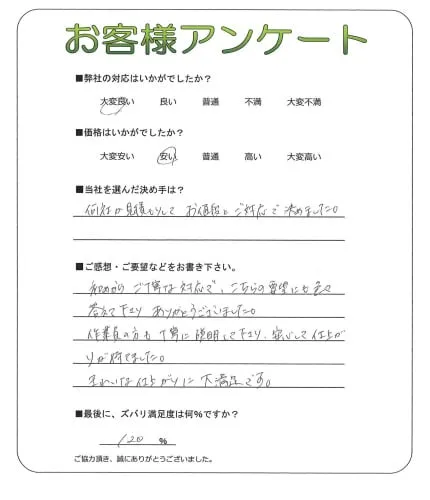 お客様アンケート
■弊社の対応はいかがでしたか?
大変良い 良い 普通 不満 大変不満
■価格はいかがでしたか?
大変安い 安い 普通 高い 大変高い
■当社を選んだ決め手は?
何社か見積もりして お値段と ご対応で 決めました。
■ご感想・ご要望などをお書き下さい。
初めから ご丁寧な対応で、こちらの要望にも色々
答えて下さり ありがとうございました。
作業員の方も丁寧に説明して下さり、安心して仕上が
りが待てました。
きれいな仕上がりに 大満足です。
■最後に、ズバリ満足度は何%ですか?
120 %
ご協力頂き、誠にありがとうございました。